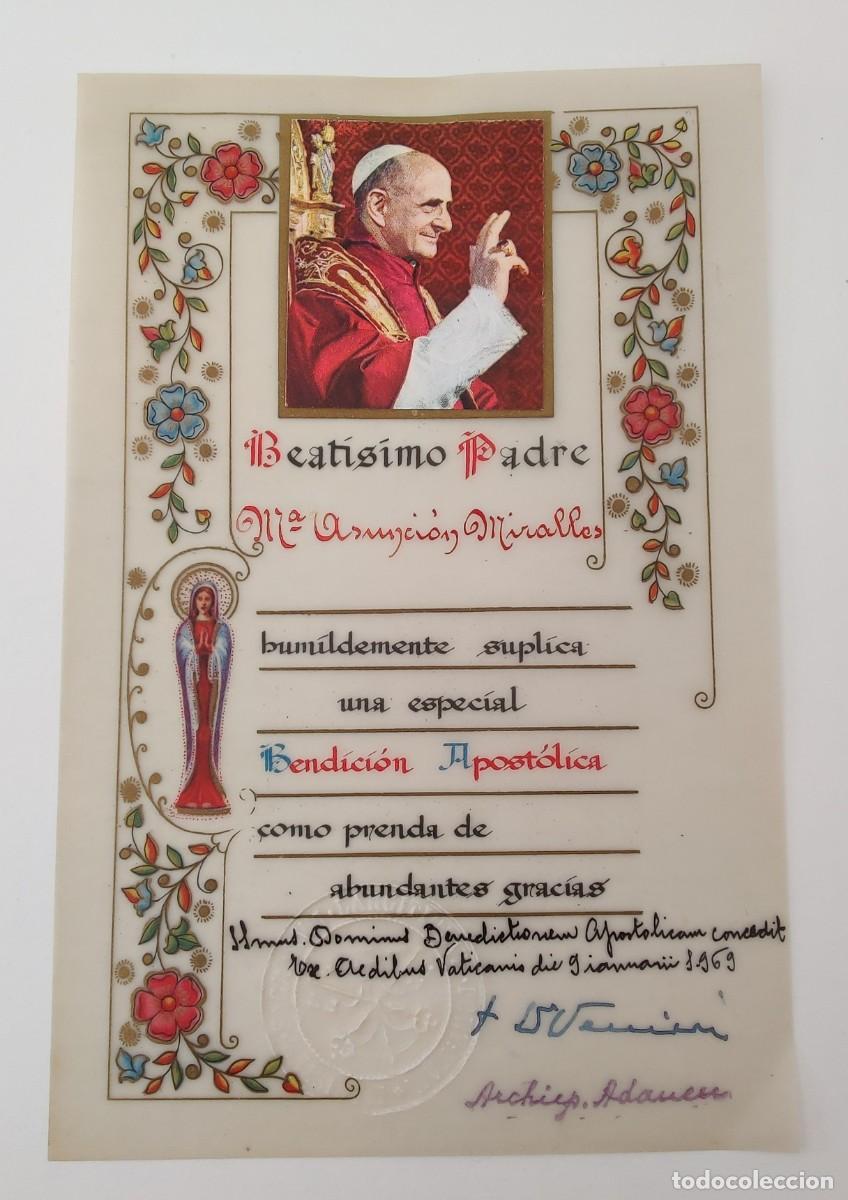 Beatísimo Padre
Mª Asunción Miralles
humildemente suplica
una especial
Bendición Apostólica
como prenda de
abundantes gracias
SSmus. Dominus Benedictionem Apostolicam concedit
Ex Aedibus Vaticanis die 9 ianuarii 1969
Archiep. Adanen
todocoleccion